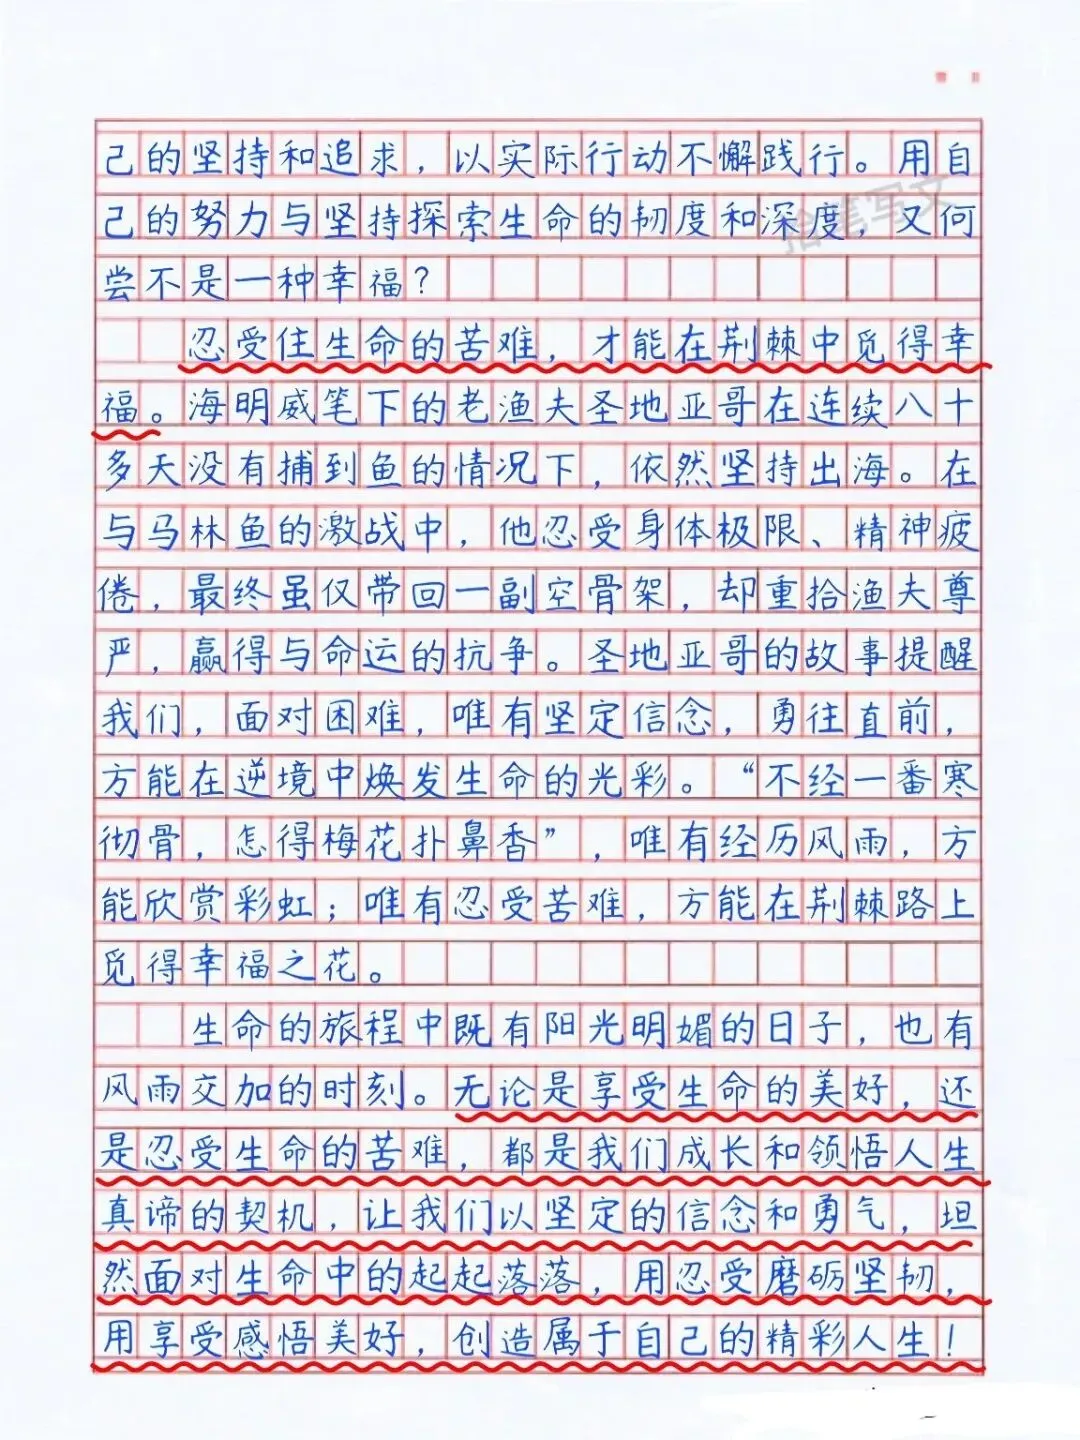 己的坚持和追求，以实际行动不懈践行。用自
己的努力与坚持探索生命的韧度和深度，又何
尝不是一种幸福？
忍受住生命的苦难，才能在荆棘中觅得幸
福。海明威笔下的老渔夫圣地亚哥在连续八十
多天没有捕到鱼的情况下，依然坚持出海。在
与马林鱼的激战中，他忍受身体极限、精神疲
倦，最终虽仅带回一副空骨架，却重拾渔夫尊
严，赢得与命运的抗争。圣地亚哥的故事提醒
我们，面对困难，唯有坚定信念，勇往直前，
方能在逆境中焕发生命的光彩。“不经一番寒
彻骨，怎得梅花扑鼻香”，唯有经历风雨，方
能欣赏彩虹；唯有忍受苦难，方能在荆棘路上
觅得幸福之花。
生命的旅程中既有阳光明媚的日子，也有
风雨交加的时刻。无论是享受生命的美好，还
是忍受生命的苦难，都是我们成长和领悟人生
真谛的契机，让我们以坚定的信念和勇气，坦
然面对生命中的起起落落，用忍受磨砺坚韧，
用享受感悟美好，创造属于自己的精彩人生！
拾笔写文